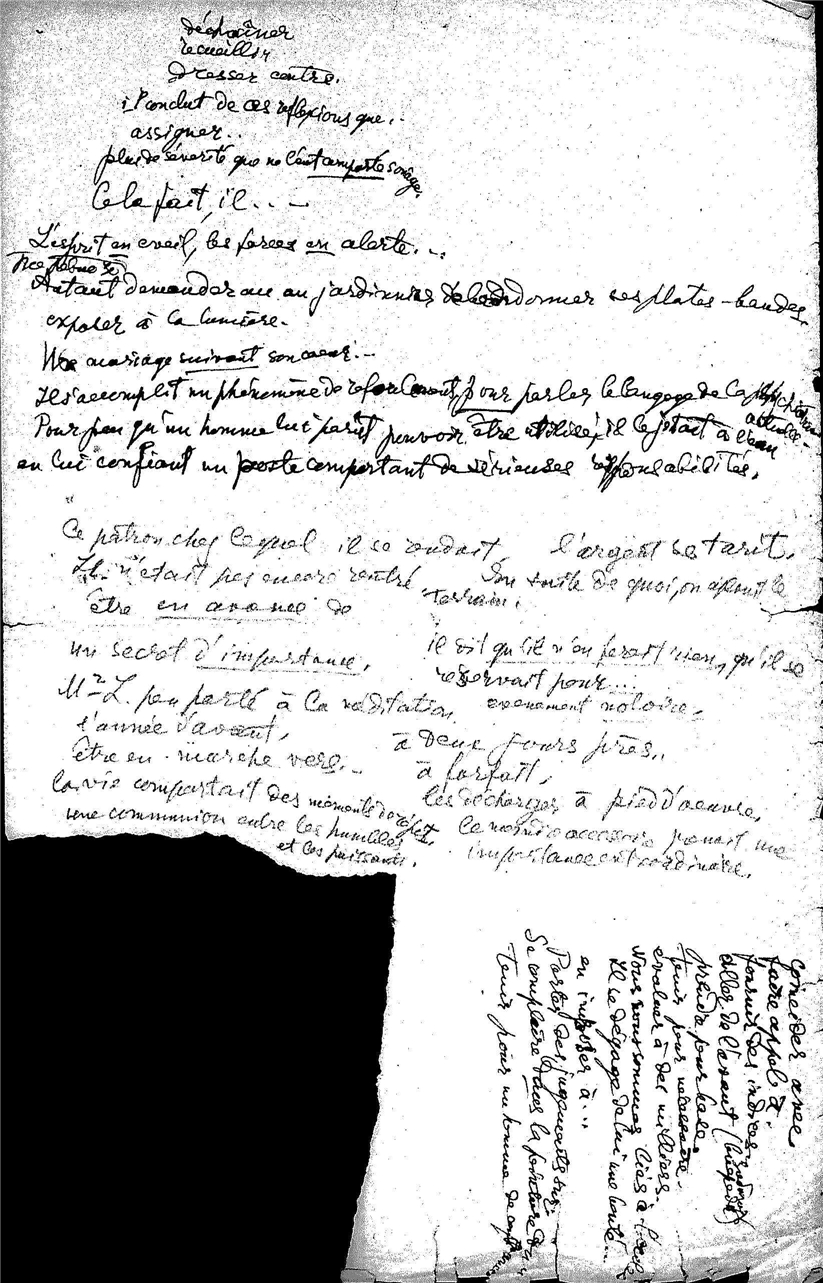 déchaîner
recueillir
dresser contre.
il conclut de ces réflexions que..
assigner..
plus de sévérité que ne l'eût comporté son âge.
Cela fait, il...
L'esprit en éveil, les forces en alerte...
Autant demander au jardinier d'abandonner ses plates-bandes
exposer à la lumière.
mariage suivant son cœur...
Il s'accomplit un phénomène de refoulement, pour parler le langage de la
actuelle.
Pour peu qu'un homme lui parût pouvoir être utilisé, il le jetait à l'eau
en lui confiant un poste comportant de sérieuses responsabilités.
Ce patron chez lequel il se rendait
Il n'était pas encore rentré
être en avance de
un secret d'importance.
Mr L. peu porté à la méditation
l'année d'avant.
être en marche vers...
la vie comportait des moments de répit.
une communion entre les humbles
et les puissants.
l'argent se tarit.
En suite de quoi, on aplanit le
terrain.
il dit qu'il n'en ferait rien, qu'il se
réservait pour...
évènement notoire.
à deux jours près..
à forfait.
les décharges à pied d'œuvre.
accessoire prenait une
importance extraordinaire.
coïncider avec
faire appel à.
fournir des indices.
aller de l'avant
prendre pour base.
tenir pour nécessaire.
évaluer à des milliers.
Nous nous sommes liés à
Il se dégage de lui une bonté...
en imposer à...
Porter des jugements sur
Se complaire dans la peinture de
tenir pour un homme de